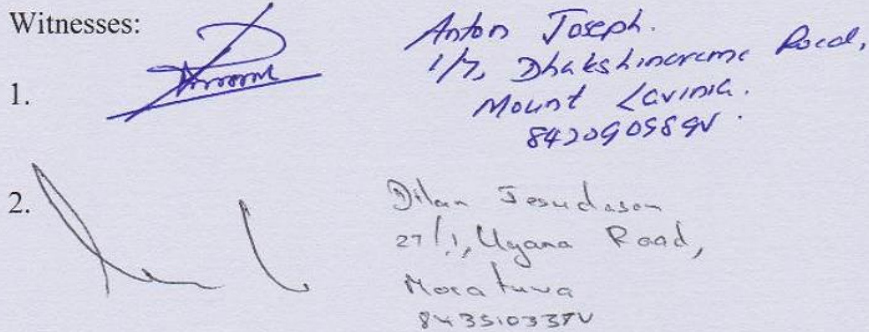 Witnesses:
1.
Anton Joseph.
1/7, Dhakshinarama Road,
Mount Lavinia.
842090589V.
2.
Dilan Jesudason
27/1, Uyana Road,
Moratuwa
843510337V